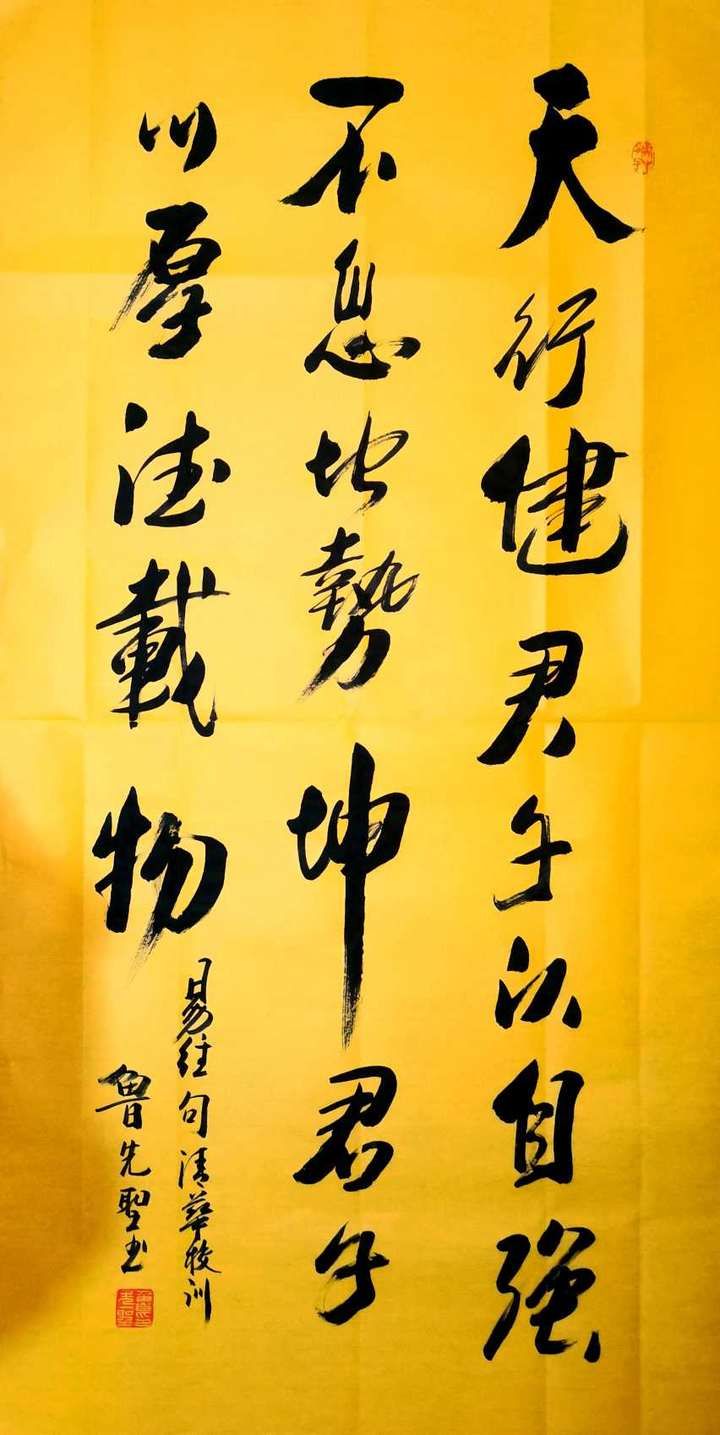 天行健君子以自强
不息地勢坤君子
以厚德載物
易经句清華校训
魯先聖书